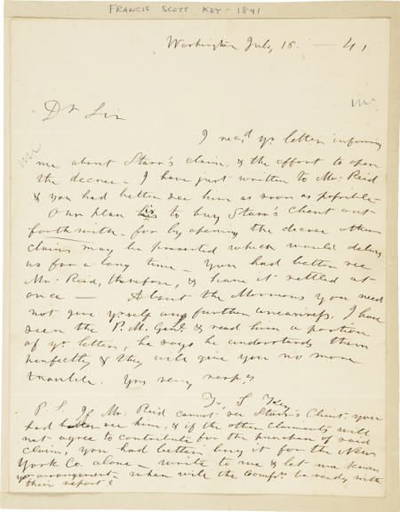 FRANCIS SCOTT KEY - 1841
Washington July 15 — 41
Dr Sir
I recd yr letter informing
me about Starr's claim, & the effort to open
the decree. I have just written to Mr. Reid
& you had better see him as soon as possible—
Our plan is to buy Starr's Client out
forthwith — for by opening the decree other
claims may be presented which would delay
us for a long time — You had better see
Mr. Reid, therefore, & have it settled at
once — About the Mormons you need
not give yrself any further uneasiness. I have
seen the P. M. Genl. & read him a portion
of yr letter, he says he understands them
perfectly & they will give you no more
trouble. Yrs very respy
F. S. Key
P. S. If Mr. Reid cannot see Starr's Client you
had better see him, & if the other claimants will
not agree to contribute for the purchase of said
claim, you had better buy it for the New
York Co. alone — write to me & let me know
yr arrangement — when will the Comrs. be ready with
their report?